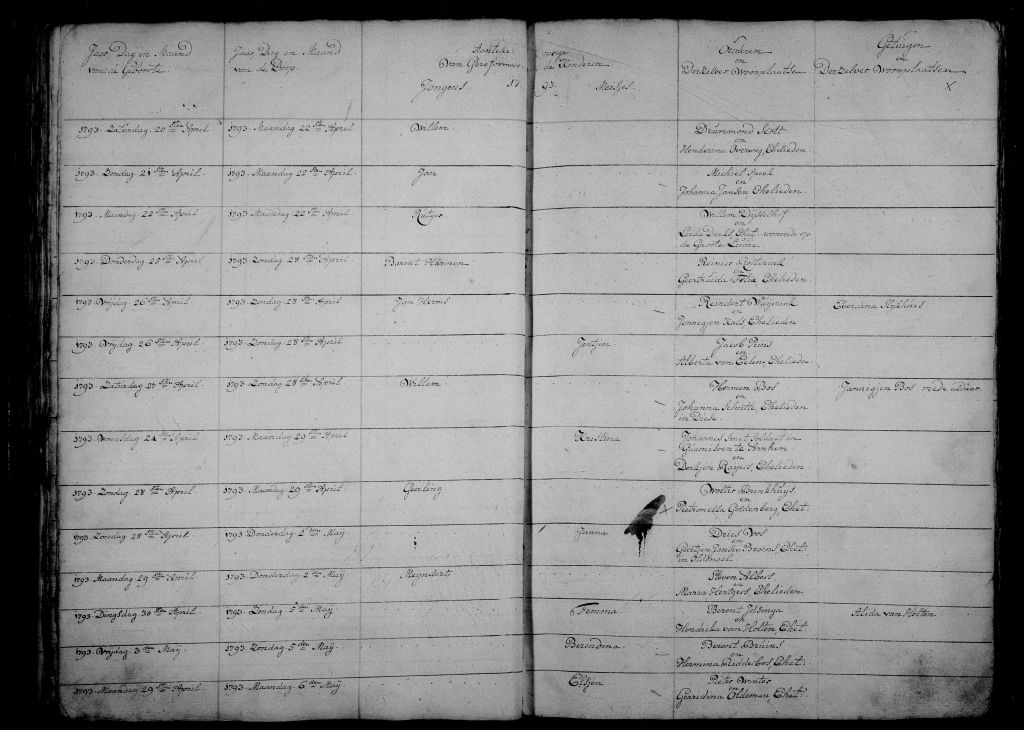 Jaar, Dag en Maand van de Geboorte
Jaar, Dag en Maand van de Doop
Aanteke
van Gereformeer
Jongens 17
de Kinderen
93. Meisjes
Ouderen
en
Derzelver Woonplaatsen
Getuigen
en
Derzelver Woonplaatsen
1793. Zaturdag 20 sten April 1793. Maandag 22 sten April Willem
Drummond Scott
en
Henderina Overweg, Ehelieden
1793. Zondag 21 sten April 1793. Maandag 22 sten April Jan
Michiel Spook
en
Johanna Jansen Ehelieden
1793. Maandag 22 sten April 1793. Maandag 22 sten April Rutger
Willem Dijsselhof
en
Leida Derks, Ehel: wonende op
de Groote
1793. Donderdag 25 sten April 1793. Zondag 28 sten April Barent Harmen
Reinier
en
Geertruida Ehelieden
1793. Vrijdag 26 sten April 1793. Zondag 28 sten April Jan Herms
Reindert
en
Jennegjen Kals, Ehelieden
Everdina
1793. Vrijdag 26 sten April 1793. Zondag 28 sten April Jentjen
Jacob Prins
en
Alberta van Eelen, Ehelieden
1793. Zaturdag 27 sten April 1793. Zondag 28 sten April Willem
Hermen Bos
en
Johanna Schutte Ehelieden
in Diese
Jannegjen Bos mede aldaar
1793. Woensdag 24 sten April 1793. Maandag 29 sten April Kristina
Johannes Smit soldaat in
Guarnisoen te Arnhem
en
Derkjen Ehelieden
1793. Zondag 28 sten April 1793. Maandag 29 sten April Geerling
Wolter Brinkhuijs
en
Pietronella Goldenberg, Ehel:
1793. Zondag 28 sten April 1793. Donderdag 2 den Maij Janna
Dries Vos
en
Geertjen Jansen Broens, Ehel:
in
1793. Maandag 29 sten April 1793. Donderdag 2 den Maij Meijndert
Steven Albers
en
Maria Hertgers Ehelieden
1793. Dingsdag 30 sten April 1793. Zondag 5 den Maij Femma
Berent Jelsinga
en
Hendrika van Holten, Ehel:
Alida van Holten
1793. Vrijdag 3 den Maij 1793. Zondag 5 den Maij Berendina
Berent Bruins
en
Hermina Ehel:
1793. Maandag 29 sten April 1793. Maandag 6 den Maij Elsjen
Pieter Winter
en
Gerredina Oldeman, Ehel: